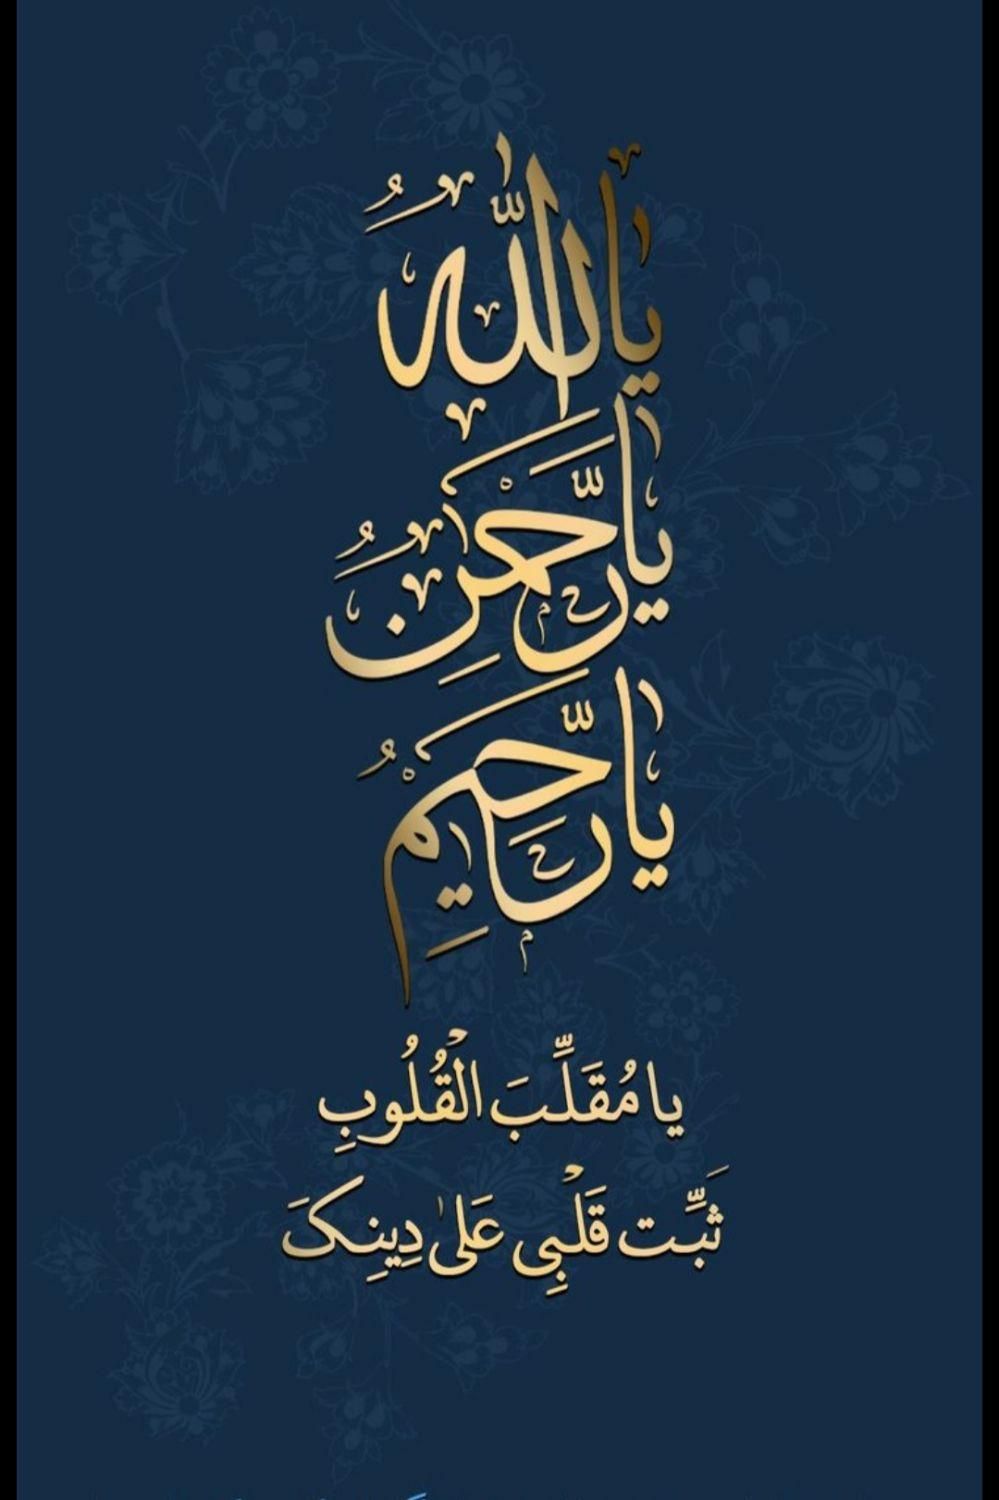 يا اَللّٰهُ
يا رَحْمٰنُ
يا رَحِيمُ
يا مُقَلِّبَ الْقُلُوبِ
ثَبِّت قَلْبِی عَلىٰ دِينِکَ